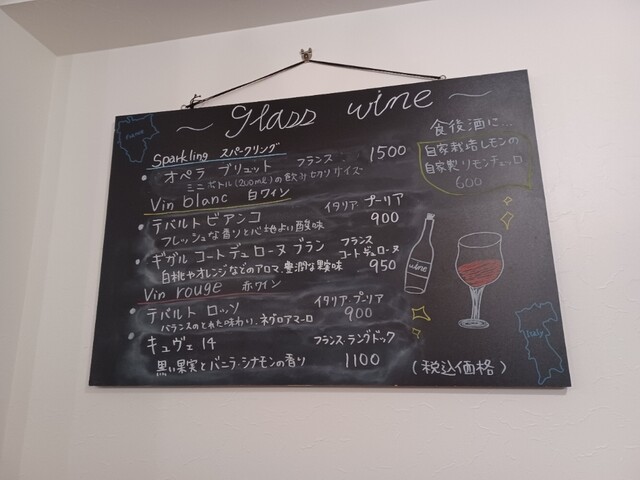 ~ glass wine ~
Sparkling スパークリング
・オペラ ブリュット フランス 1500
ミニボトル(200ml)の飲み切りサイズ
Vin blanc 白ワイン
・テバルト ビアンコ イタリア プーリア
フレッシュな香りと心地よい酸味 900
・ギガル コート デュ ローヌ ブラン フランス コートデュローヌ
白桃やオレンジなどのアロマ、豊潤な果実味 950
Vin rouge 赤ワイン
・テバルト ロッソ イタリア・プーリア
バランスのとれた味わり、ネグロアマーロ 900
・キュヴェ 14 フランス・ラングドック
黒い果実とバニラ・シナモンの香り 1100
食後酒に...
自家栽培レモンの
自家製リモンチェッロ
600
wine
Italy
(税込価格)